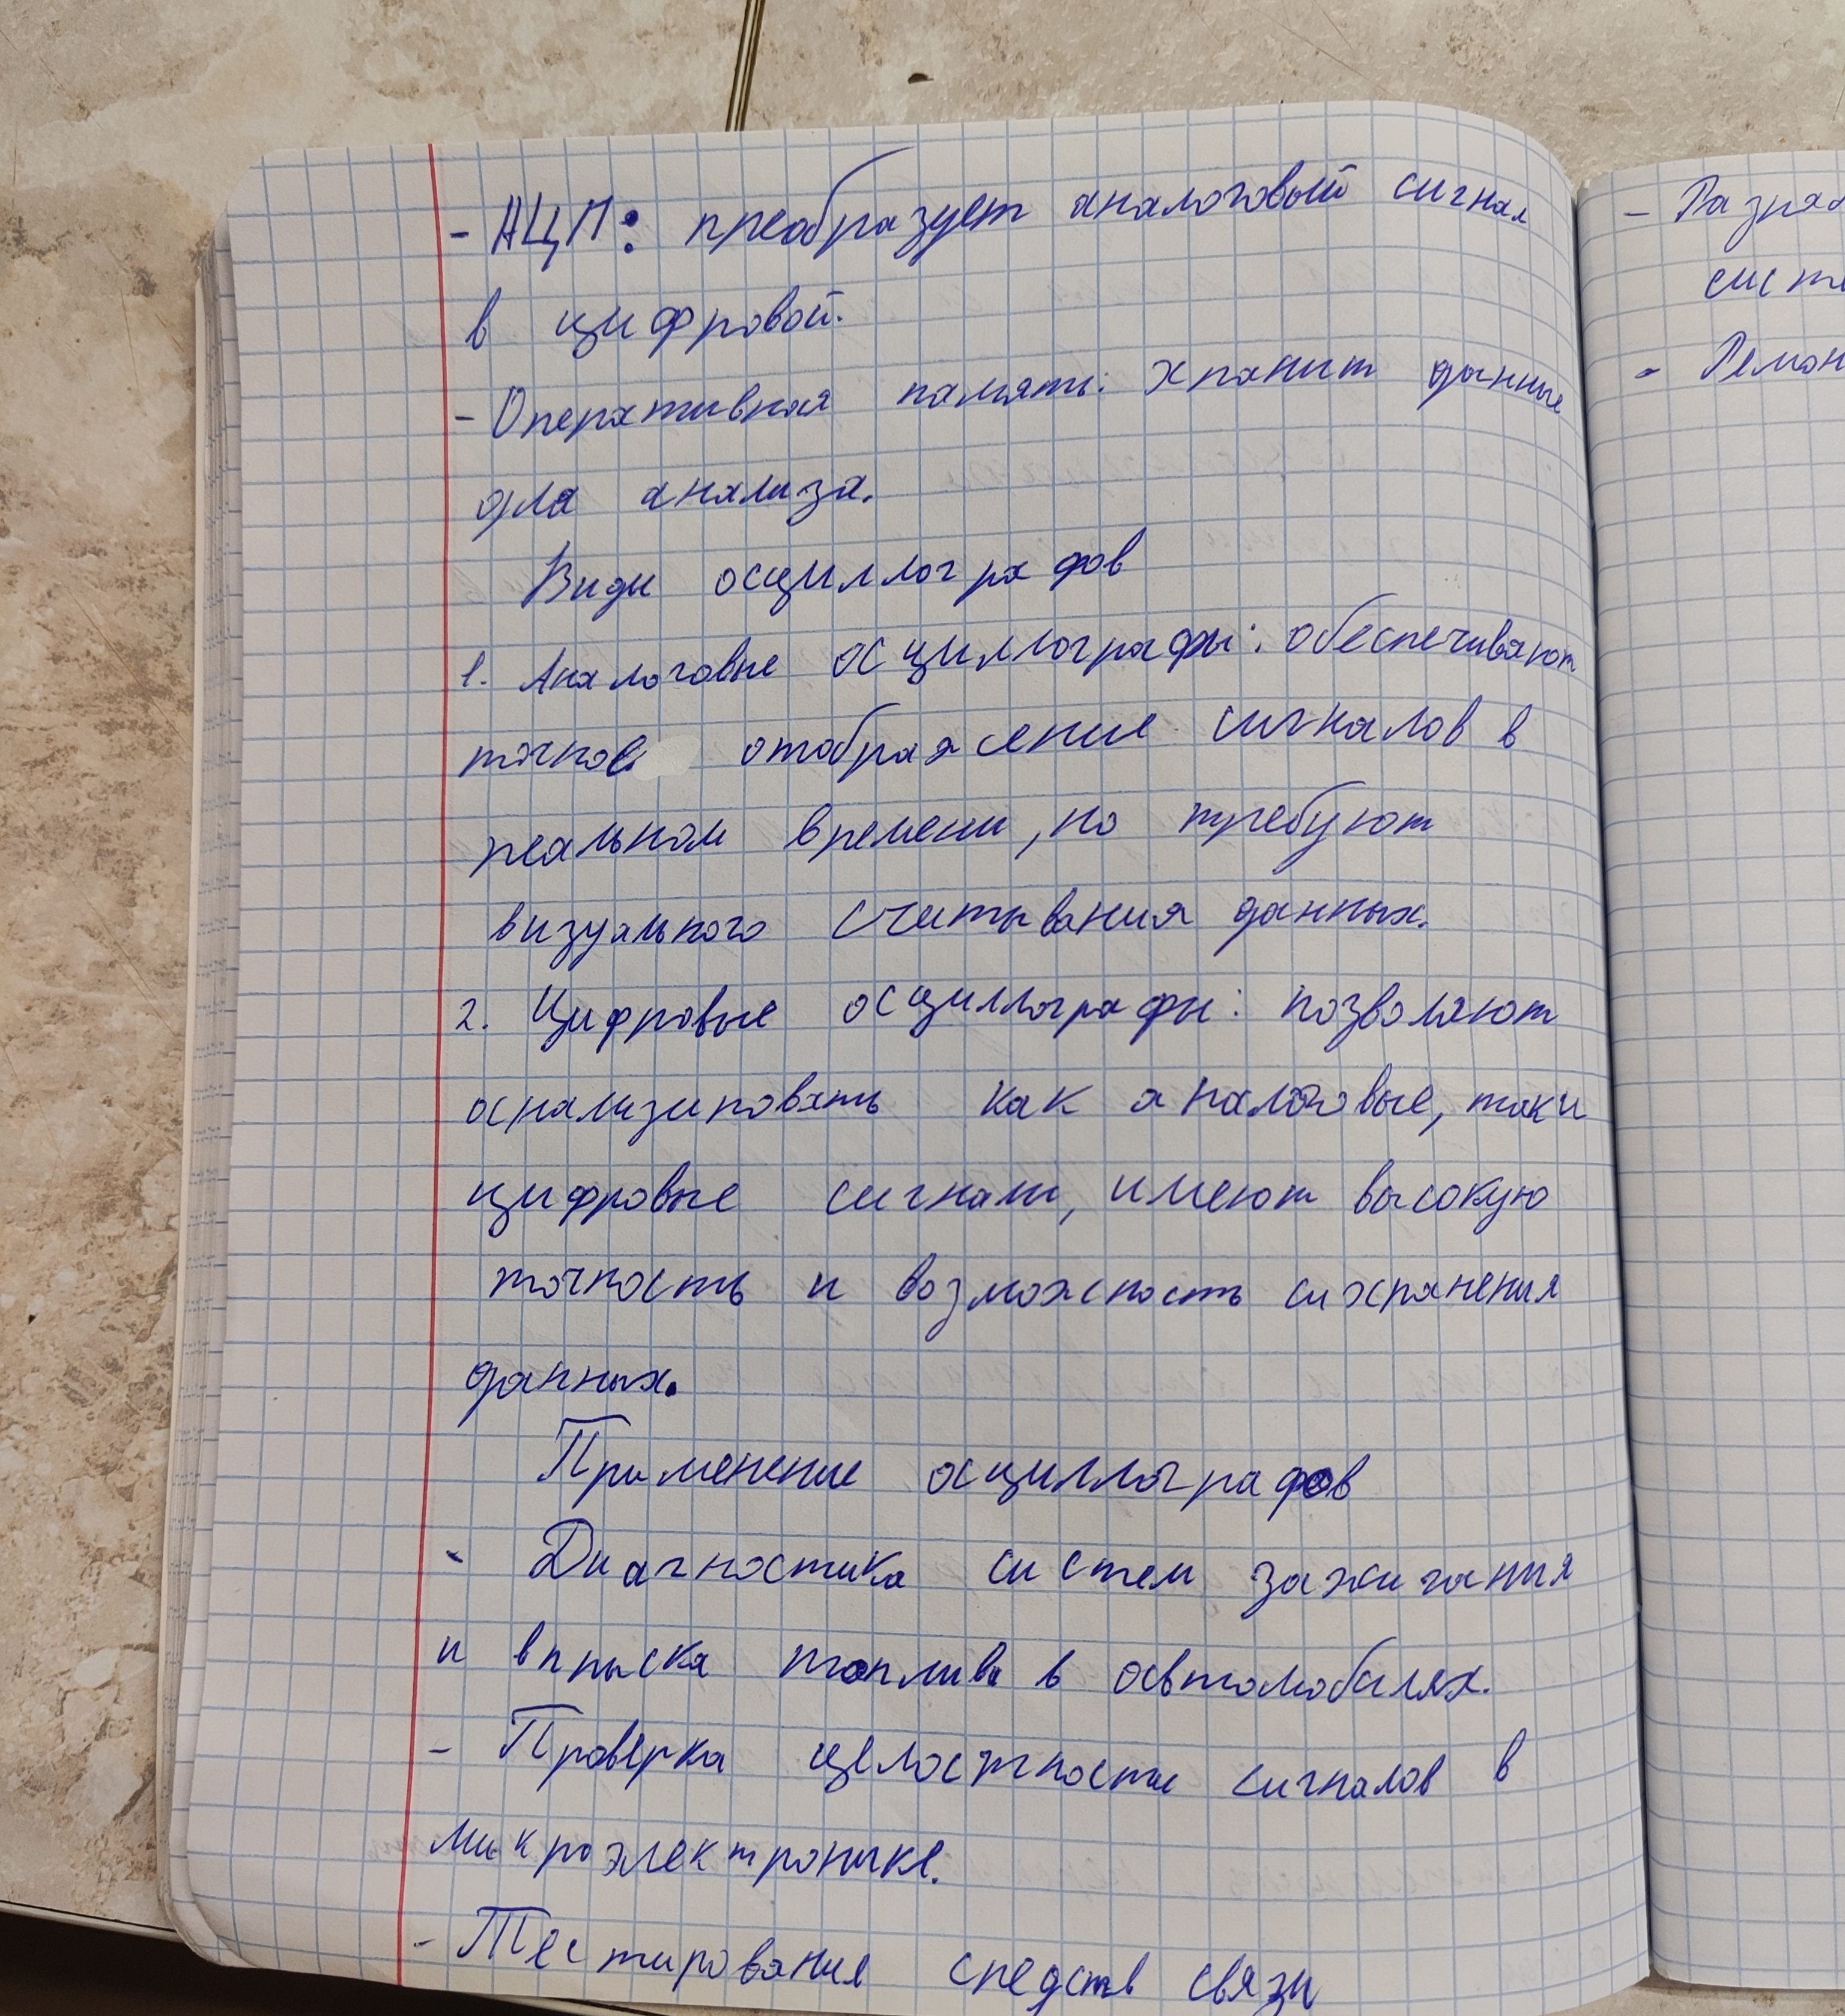 - АЦП: преобразует аналоговый сигнал
в цифровой.
- Оперативная память: хранит данные
для анализа.
Виды осциллографов
1. Аналоговые осциллографы: обеспечивают
точное отображение сигналов в
реальном времени, но требуют
визуального считывания данных.
2. Цифровые осциллографы: позволяют
анализировать как аналоговые, так и
цифровые сигналы, имеют высокую
точность и возможность сохранения
данных.
Применение осциллографов
- Диагностика систем зажигания
и впрыска топлива в автомобилях.
- Проверка целостности сигналов в
микроэлектронике.
- Тестирование средств связи
- Разраб
систе
- Ремон